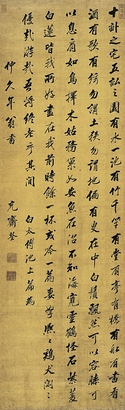 十畝之宅五畝之園有水一池有竹千竿有堂有亭有橋有船有書有
酒有歌有絃勿謂土狹勿謂地偏有叟在中白鬚飄然可以容膝可
以息肩如鳥擇木姑務巢安如魚在沼不知海寬靈鶴怪石紫菱
白蓮皆我所好盡在我前時飲一杯或吟一篇妻孥熙熙雞犬閒閒
優哉游哉吾將終老乎其間 白太傅池上篇為
仲久年翁書